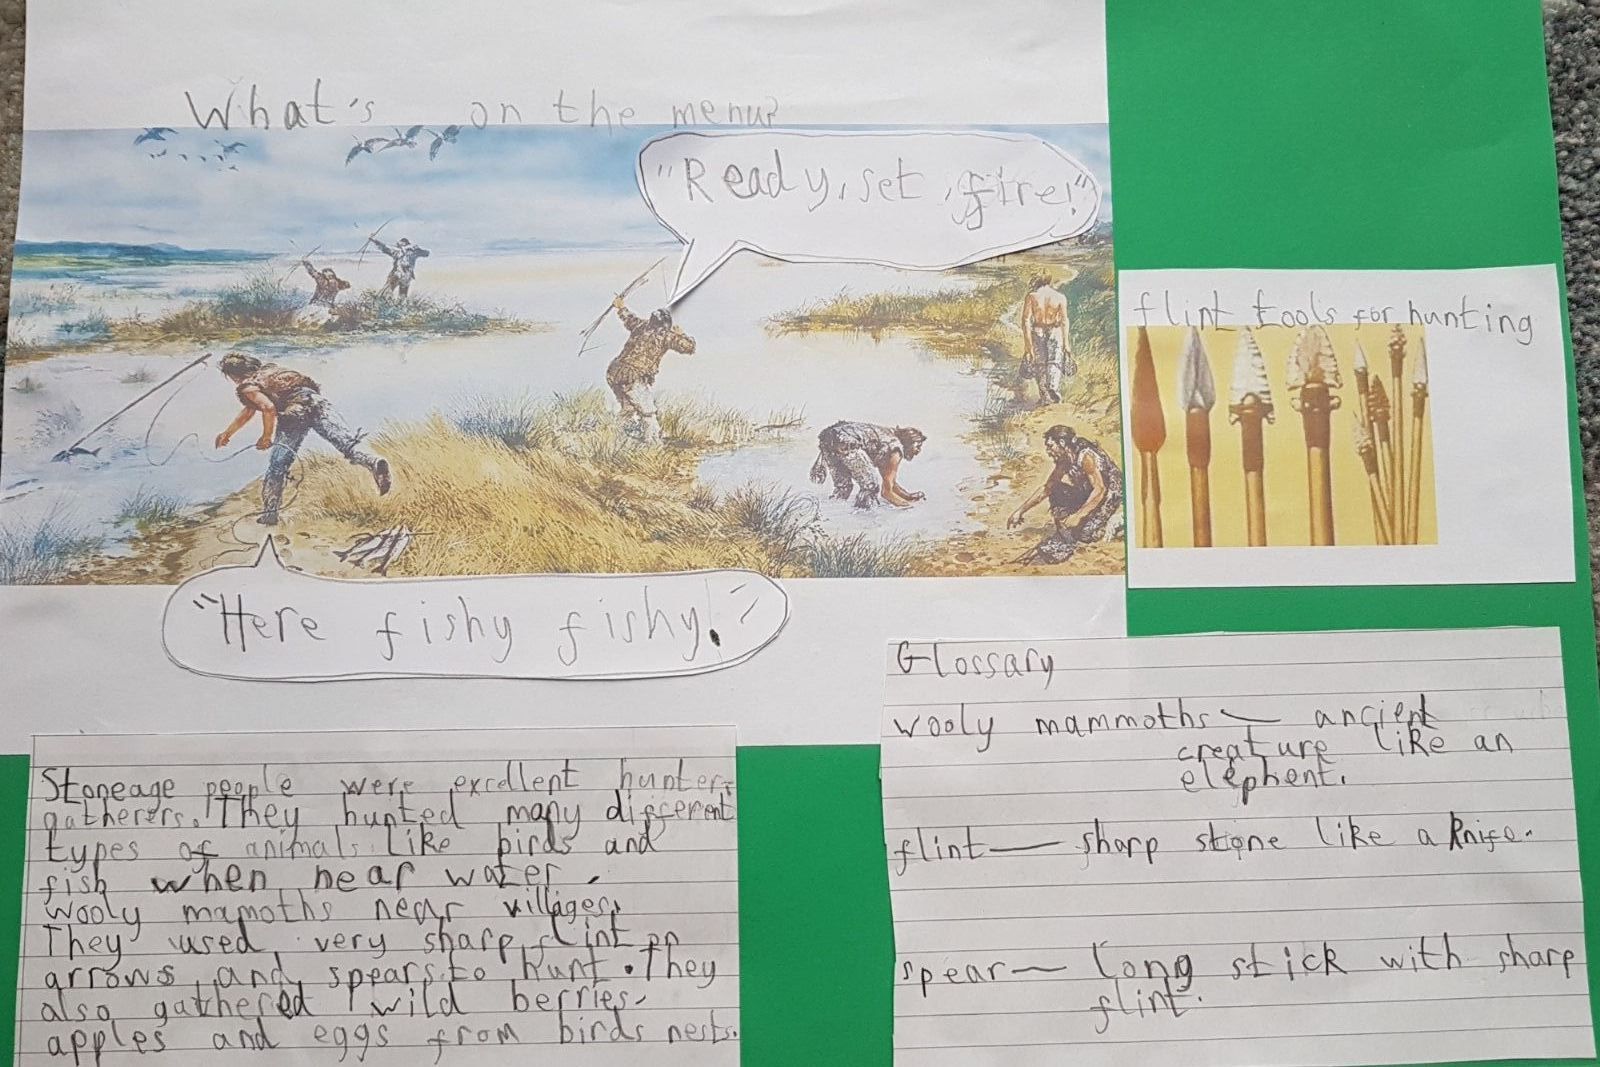 What's on the menu?
"Ready, set, fire!"
flint tools for hunting
"Here fishy fishy!"
Glossary
wooly mammoths — ancient
creature like an
elephent.
flint — sharp stone like a knife.
spear — long stick with sharp
flint.
Stoneage people were excellent hunter-
gatherers. They hunted many different
types of animals like birds and
fish when near water.
Wooly mamoths near villages.
They used very sharp flint on
arrows and spears to hunt. They
also gathered wild berries,
apples and eggs from birds nests.